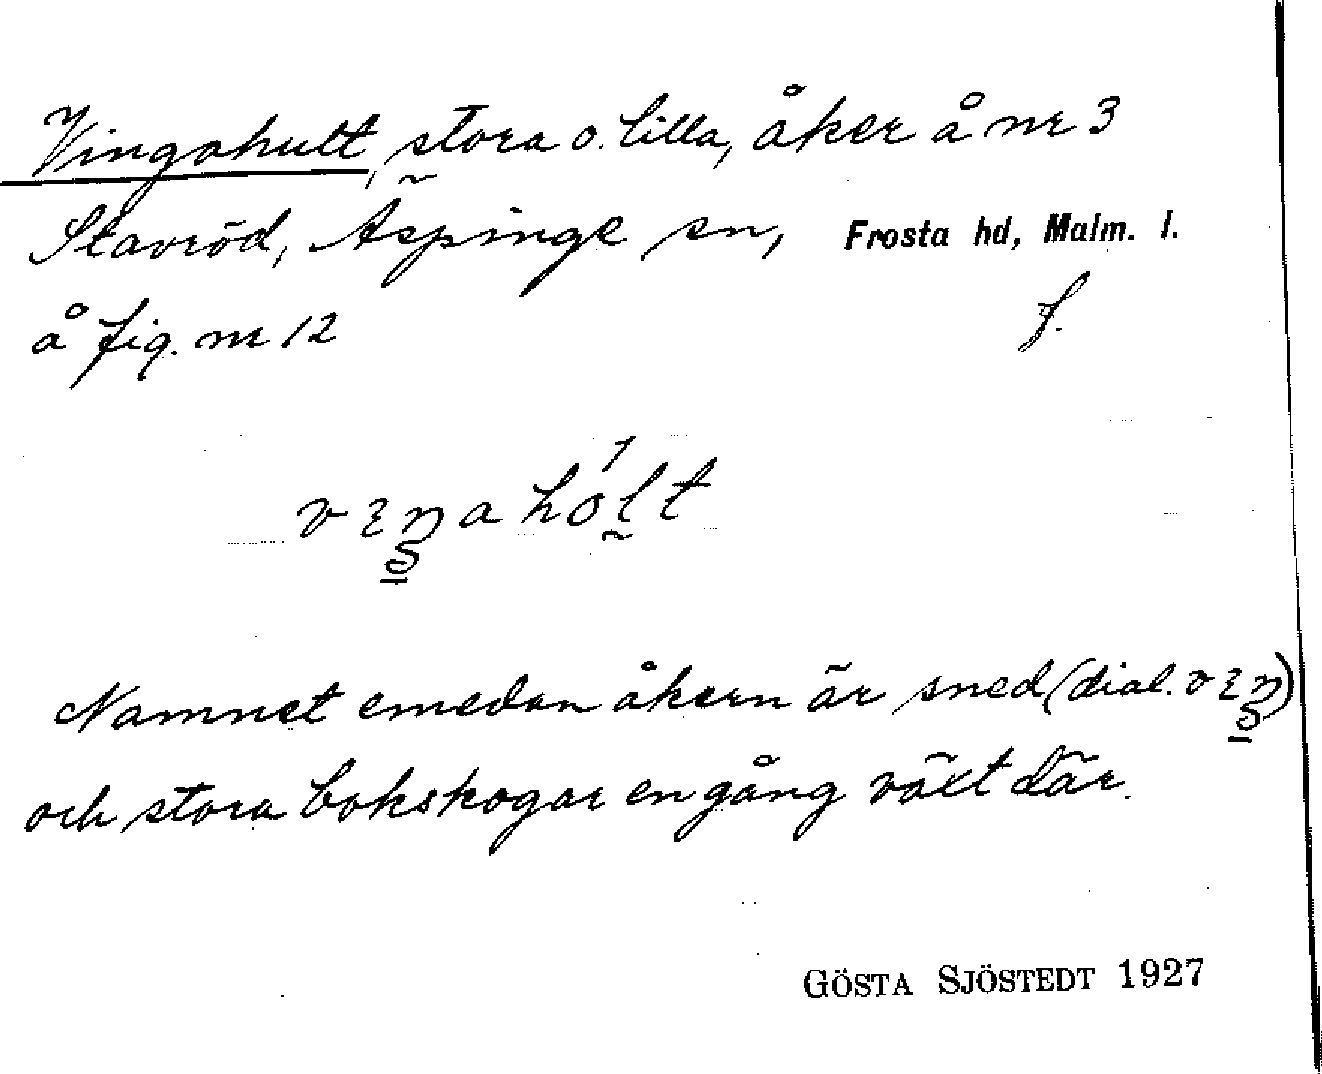 Vingahult, stora o. lilla, åker å nr 3
Stavröd, Äspinge sn, Frosta hd, Malm. l.
å fig. nr 12 f.
vɛŋahólt
Namnet emedan åkern är sned (dial. vɛŋ)
och stora bokskogar en gång växt där.
GÖSTA SJÖSTEDT 1927